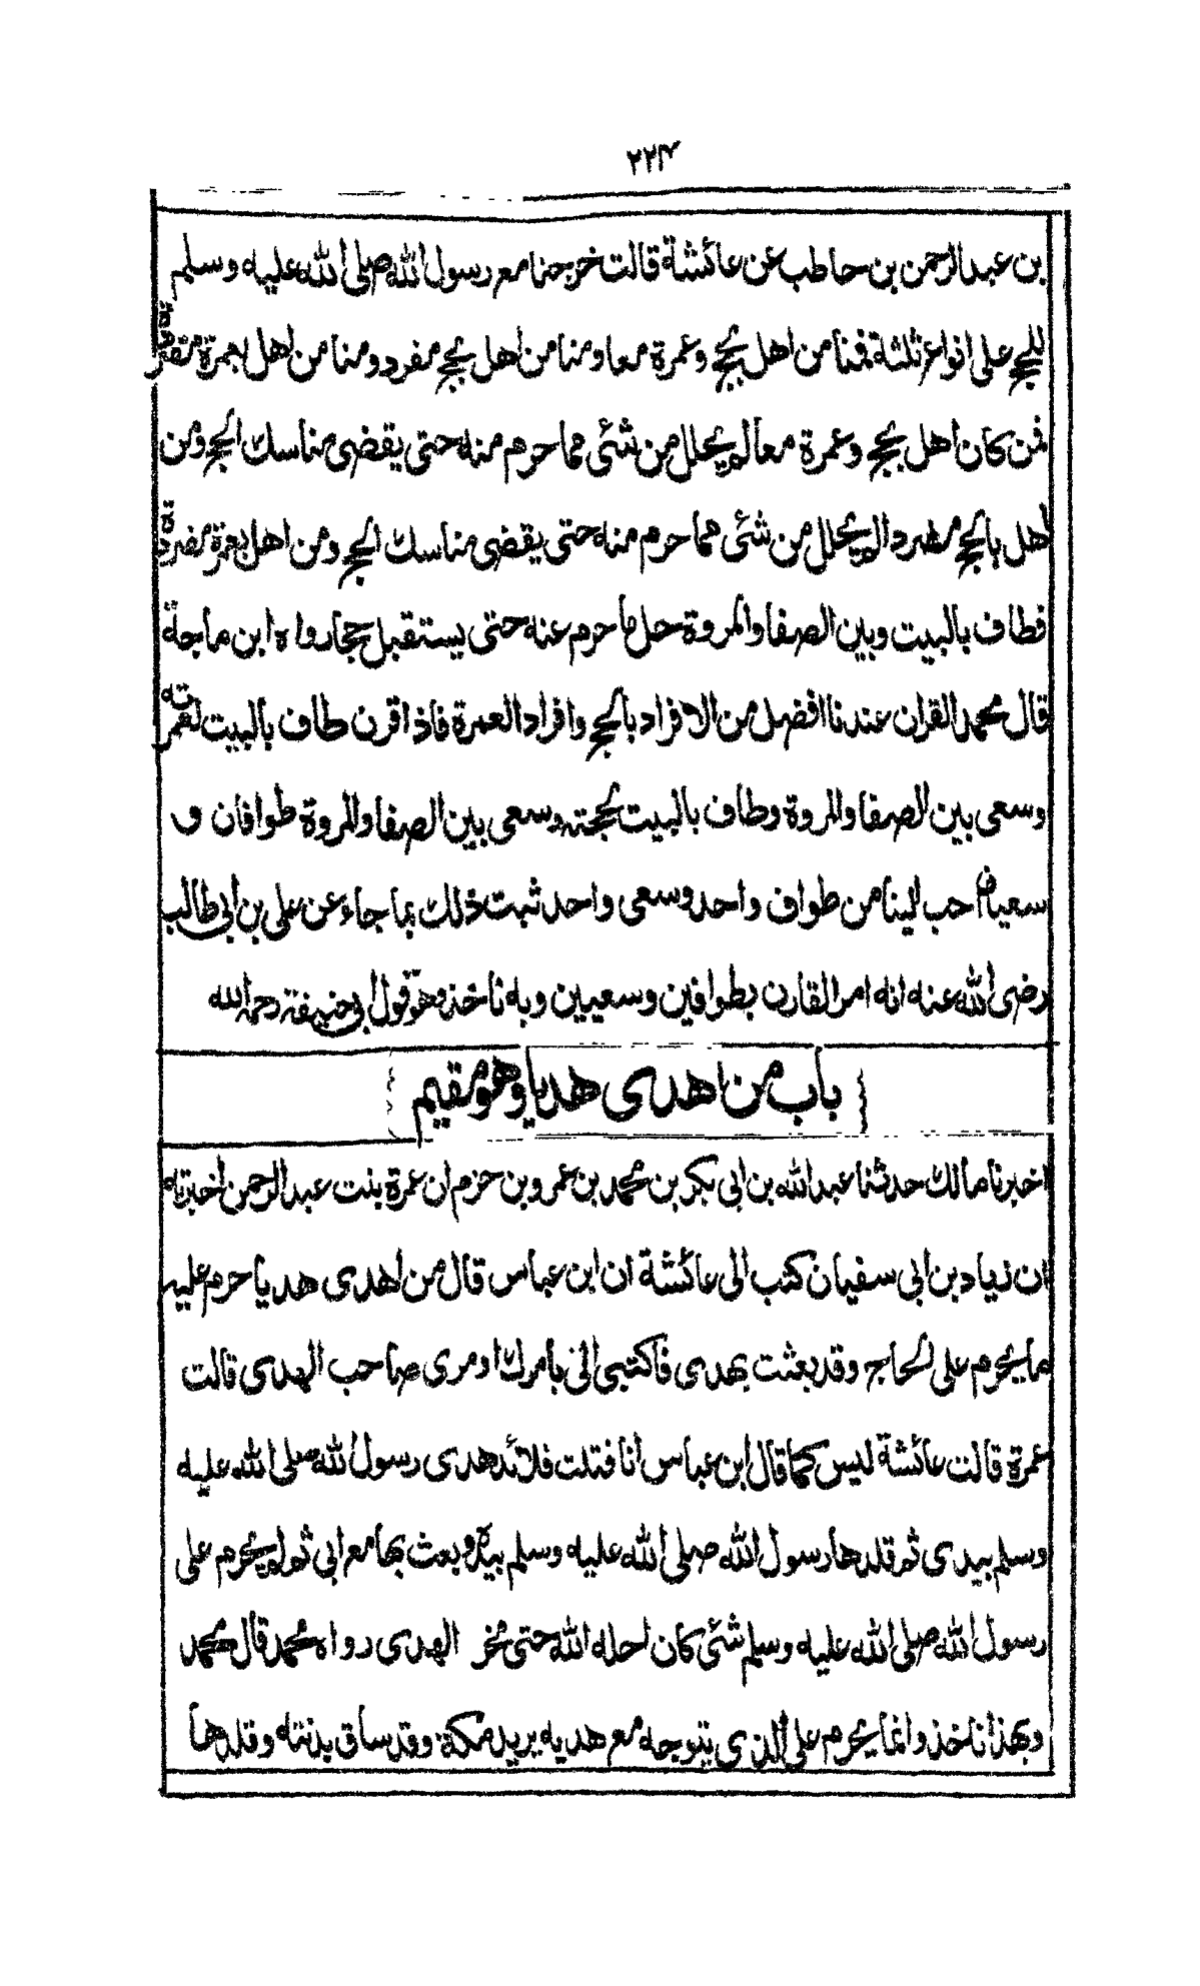 ٢٢٤
بن عبدالرحمن بن حاطب عن عائشة قالت خرجنا مع رسول الله صلى الله عليه وسلم
للحج على انواع ثلثة فمنا من اهل بحج وعمرة معا ومنا من اهل بحج مفرد ومنا من اهل بعمرة مفردة
فمن كان اهل بحج وعمرة معا لم يحلل من شئى مما حرم منه حتى يقضى مناسك الحج ومن
اهل بالحج مفردا لم يحلل من شئى مما حرم منه حتى يقضى مناسك الحج ومن اهل بعمرة مفردة
فطاف بالبيت وبين الصفا والمروة حل ما حرم عنه حتى يستقبل حجا رواه ابن ماجة
قال محمد القران عندنا افضل من الافراد بالحج وافراد العمرة فاذا قرن طاف بالبيت لعمرته
وسعى بين الصفا والمروة وطاف بالبيت لحجته وسعى بين الصفا والمروة طوافان و
سعيان احب الينا من طواف واحد وسعى واحد ثبت ذلك بما جاء عن على بن ابى طالب
رضى الله عنه انه امر القارن بطوافين وسعيين وبه ناخذ وهو قول ابى حنيفة رحمه الله
باب من اهدى هديا وهو مقيم
اخبرنا مالك حدثنا عبد الله بن ابى بكر بن محمد بن عمرو بن حزم ان عمرة بنت عبد الرحمن اخبرته
ان زياد بن ابى سفيان كتب الى عائشة ان ابن عباس قال من اهدى هديا حرم عليه
ما يحرم على الحاج وقد بعثت بهدى فاكتبى الى بامرك او مرى صاحب الهدى قالت
عمرة قالت عائشة ليس كما قال ابن عباس انا فتلت قلائد هدى رسول الله صلى الله عليه
وسلم بيدى ثم قلدها رسول الله صلى الله عليه وسلم بيده وبعث بها مع ابى ثم لم يحرم على
رسول الله صلى الله عليه وسلم شئى كان احله الله حتى نحر الهدى رواه محمد قال محمد
وبهذا ناخذ وانما يحرم على الذى يتوجه مع هديه يريد مكة وقد ساق بدنته وقلدها